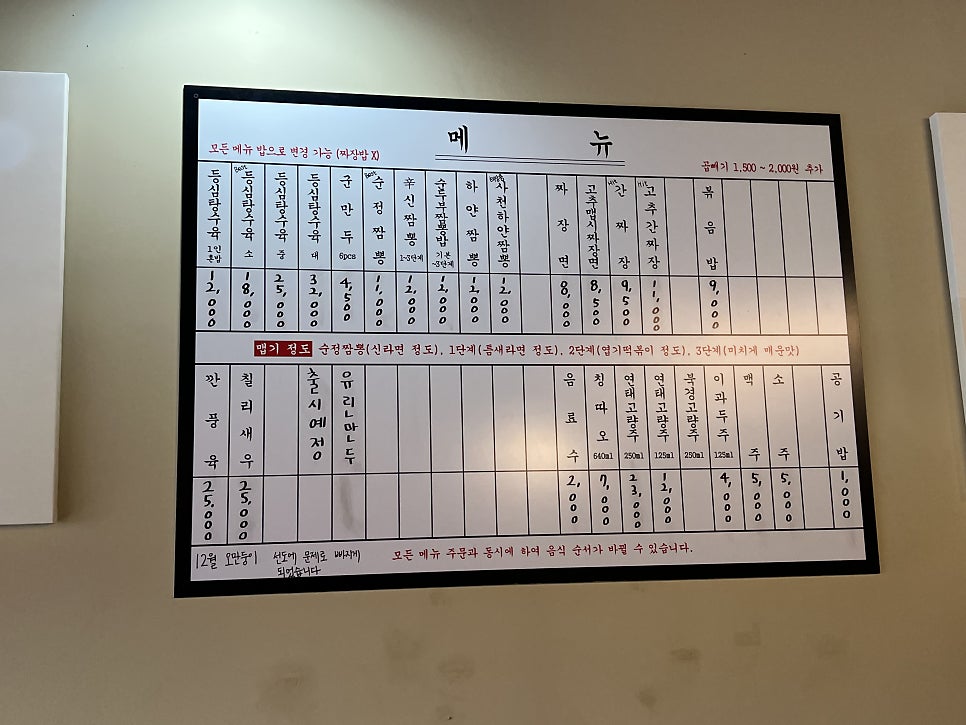 메 뉴
모든 메뉴 밥으로 변경 가능 (짜장밥 X)
곱빼기 1,500 ~ 2,000원 추가
등심탕수육 1인 혼밥 12,000
Best 등심탕수육 소 18,000
등심탕수육 중 25,000
등심탕수육 대 32,000
군만두 6pcs 4,500
Best 순정짬뽕 11,000
辛신짬뽕 1~3단계 12,000
순두부짬뽕밥 기본~3단계 12,000
하얀짬뽕 12,000
사천하얀짬뽕 12,000
짜장면 8,000
고추맵시짜장면 8,500
Hit 간짜장 9,500
Hit 고추간짜장 11,000
볶음밥 9,000
맵기 정도 순정짬뽕(신라면 정도), 1단계(틈새라면 정도), 2단계(엽기떡볶이 정도), 3단계(미치게 매운맛)
깐풍육 25,000
칠리새우 25,000
출시예정
유린만두
음료수 2,000
칭따오 640ml 7,000
연태고량주 250ml 23,000
연태고량주 125ml 12,000
북경고량주 250ml
이과두주 125ml 4,000
맥주 5,000
소주 5,000
공기밥 1,000
12월 오만둥이 선도에 문제로 빠지게
되었습니다
모든 메뉴 주문과 동시에 하여 음식 순서가 바뀔 수 있습니다.